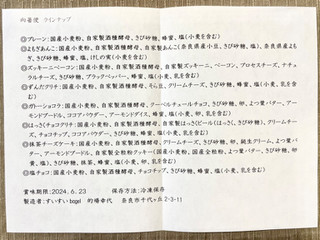 ◎プレーン：国産小麦粉、自家製酒種酵母、きび砂糖、蜂蜜、塩（小麦を含む）
◎よもぎあんこ：国産小麦粉、自家製酒種酵母、自家製あんこ（奈良県産小豆、きび砂糖、塩）、奈良県産よも
ぎ、きび砂糖、蜂蜜、塩、けしの実（小麦を含む）
◎ズッキーニベーコン：国産小麦粉、自家製酒種酵母、自家製ズッキーニ、ベーコン、プロセスチーズ、ナチュ
ラルチーズ、きび砂糖、ブラックペッパー、蜂蜜、塩（小麦、乳を含む）
◎ずんだグリチ：国産小麦粉、自家製酒種酵母、そら豆、クリームチーズ、きび砂糖、蜂蜜、塩（小麦、乳を
含む）
◎ガトーショコラ：国産小麦粉、自家製酒種酵母、クーベルチュールチョコ、きび砂糖、卵、よつ葉バター、アー
モンドプードル、ココアパウダー、アーモンドダイス、蜂蜜、塩（小麦、卵、乳を含む）
◎はっさくチョコグリチ：国産小麦粉、自家製酒種酵母、自家製はっさくピール（はっさく、きび砂糖）、クリームチー
ズ、チョコチップ、ココアパウダー、きび砂糖、蜂蜜、塩（小麦、乳を含む）
◎抹茶チーズケーキ：国産小麦粉、自家製酒種酵母、クリームチーズ、きび砂糖、卵、純生クリーム、よつ葉バ
ター、アーモンドプードル、自家製全粒粉クッキー（国産小麦粉、国産全粒粉、よつ葉バター、きび砂糖、卵
黄、塩）、きび砂糖、抹茶、蜂蜜、塩（小麦、卵、乳を含む）
◎塩チョコ：国産小麦粉、自家製酒種酵母、チョコチップ、きび砂糖、蜂蜜、塩（小麦、乳を含む）
賞味期限：2024.6.23 保存方法：冷凍保存
製造者：すいすいbagel 的場幸代 奈良市千代ヶ丘2-3-11